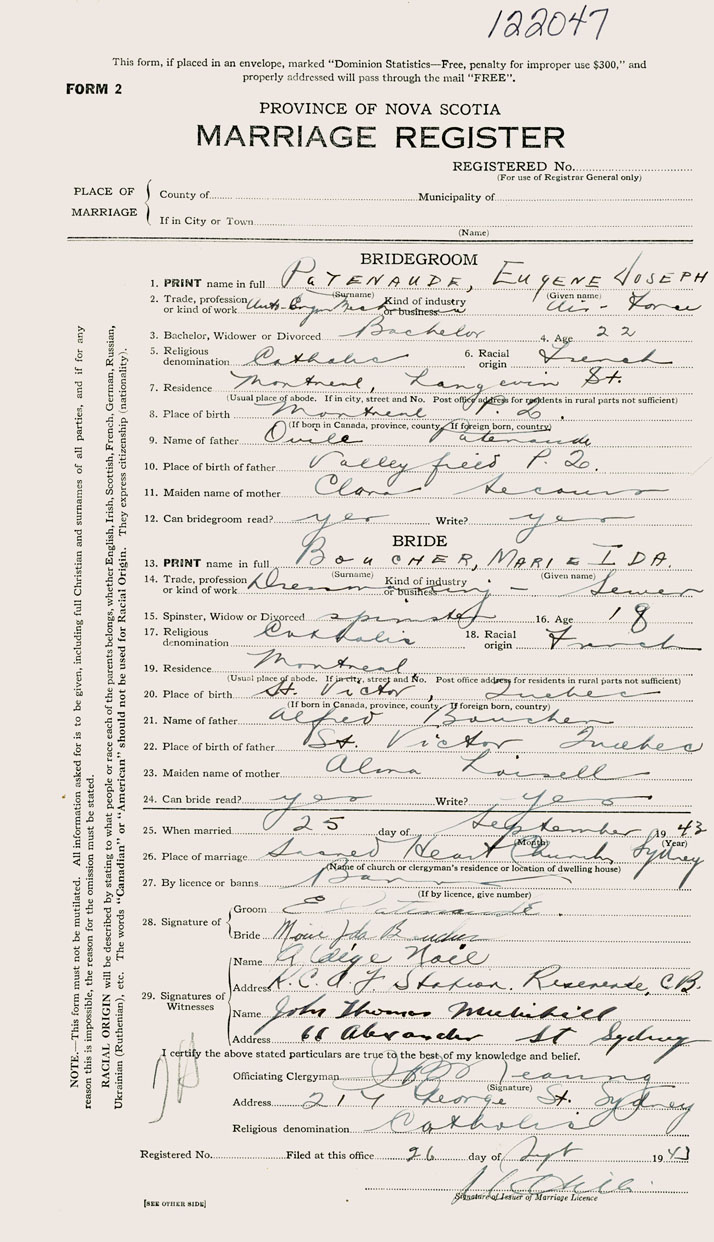 122047
This form, if placed in an envelope, marked "Dominion Statistics—Free, penalty for improper use $300," and
properly addressed will pass through the mail "FREE".
FORM 2
PROVINCE OF NOVA SCOTIA
MARRIAGE REGISTER
REGISTERED No.
(For use of Registrar General only)
PLACE OF MARRIAGE
County of Municipality of
If in City or Town
(Name)
BRIDEGROOM
1. PRINT name in full PATENAUDE, EUGENE JOSEPH
(Surname) (Given name)
2. Trade, profession or kind of work Kind of industry or business Air-Force
3. Bachelor, Widower or Divorced Bachelor 4. Age 22
5. Religious denomination Catholic 6. Racial origin French
7. Residence Montreal, Langevin St.
(Usual place of abode. If in city, street and No. Post office address for residents in rural parts not sufficient)
8. Place of birth Montreal P. Q.
(If born in Canada, province, county. If foreign born, country)
9. Name of father Ovila Patenaude
10. Place of birth of father Valleyfield P. Q.
11. Maiden name of mother Clara
12. Can bridegroom read? yes Write? yes
BRIDE
13. PRINT name in full BOUCHER, MARIE IDA.
(Surname) (Given name)
14. Trade, profession or kind of work Dressmaking - Kind of industry or business Sewer
15. Spinster, Widow or Divorced spinster 16. Age 18
17. Religious denomination Catholic 18. Racial origin French
19. Residence Montreal
(Usual place of abode. If in city, street and No. Post office address for residents in rural parts not sufficient)
20. Place of birth St. Victor, Quebec
(If born in Canada, province, county. If foreign born, country)
21. Name of father Alfred Boucher
22. Place of birth of father St. Victor Quebec
23. Maiden name of mother Alma Loisell
24. Can bride read? yes Write? yes
25. When married 25 day of September 1943
(Month) (Year)
26. Place of marriage Sacred Heart Church, Sydney
(Name of church or clergyman's residence or location of dwelling house)
27. By licence or banns Banns
(If by licence, give number)
28. Signature of
Groom E Patenaude.
Bride Marie Ida Boucher
29. Signatures of Witnesses
Name Aldège Noël
Address R.C.A.F Station. Reserve, C.B.
Name John Thomas
Address 66 Alexander St Sydney
I certify the above stated particulars are true to the best of my knowledge and belief.
Officiating Clergyman
(Signature)
Address 217 George St. Sydney
Religious denomination Catholic
Registered No. Filed at this office 26 day of Sept 1943
Signature of Issuer of Marriage Licence
[SEE OTHER SIDE]
NOTE.—This form must not be mutilated. All information asked for is to be given, including full Christian and surnames of all parties, and if for any
reason this is impossible, the reason for the omission must be stated.
RACIAL ORIGIN will be described by stating to what people or race each of the parents belongs, whether English, Irish, Scottish, French, German, Russian,
Ukrainian (Ruthenian), etc. The words "Canadian" or "American" should not be used for Racial Origin. They express citizenship (nationality).